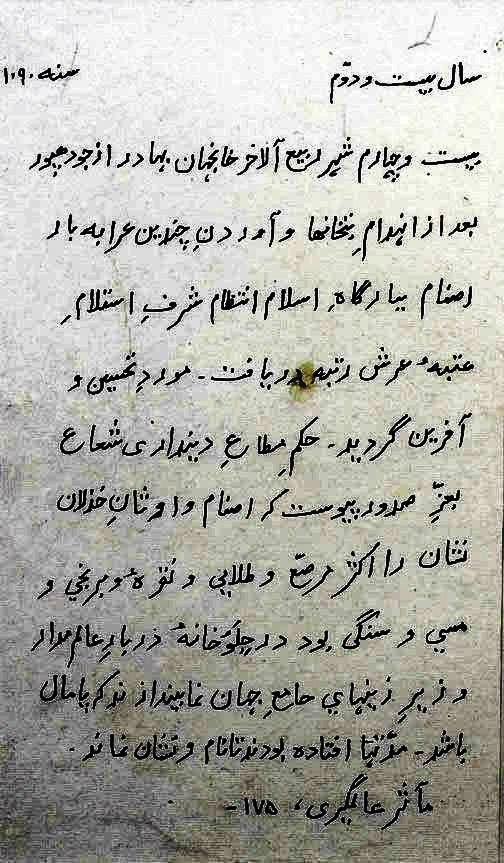 سال بیست و دوّم سنه ۱۰۹۰
بیست و چهارم شهر ربیع آلاخر خانجهان بهادر از جودهپور
بعد از انهدامِ بتخانها و آوردنِ چندین عرابه بار
اصنام ببارگاہِ اسلام انتظام شرفِ استلامِ
عتبهٔ عرش رتبه دریافت - موردِ تحسین و
آفرین گردید - حکمِ مطاعِ دینداری شعاع
بعزِّ صدور پیوست که اصنام و اوثانِ خذلان
نشان را اکثر مرصّع و طلایی و نقرهٔ و برنجی و
مسی و سنگی بود در جلوخانهٔ دربارِ عالم مدار
و زیرِ زینهای جامعِ جهان نما بیندازند که پامال
باشد - مدّتها افتاده بودند تا نام و نشان نماند -
مآثر عالمگیری، ۱۷۵ -